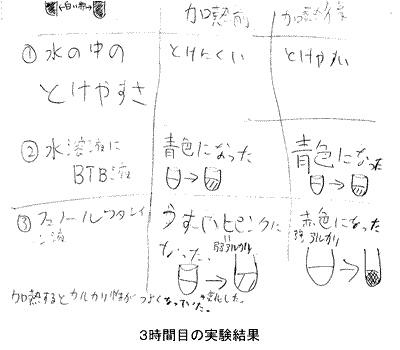 ←白い粉→ 加熱前 加熱後
① 水の中の とけにくい とけやすい
とけやすさ
② 水溶液に 青色になった 青色になった
BTB液
③ フェノールフタレイ うすいピンクに 赤色になった
ン液 なった 弱アルカリ 強アルカリ
加熱するとアルカリ性がつよくなっていた
3時間目の実験結果